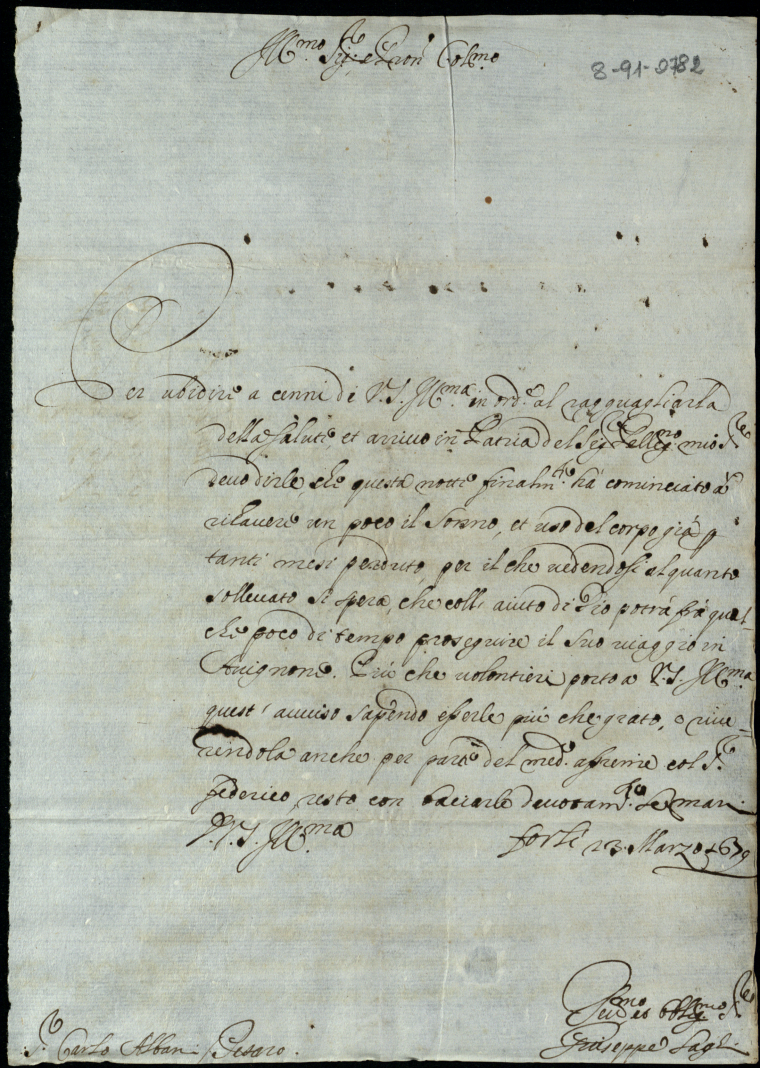 Ill.mo Sig.re e Pron Col.mo
8-91-0782
Per ubidire a cenni di V.S. Ill.ma in ord.e al ragguagliarla
della salute, et arrivo in Patria del Sig.r Pelleg.no mio f.re
devo dirle, che questa notte finalm.te ha cominciato a
rihavere un poco il sonno, et uso del corpo già p
tanti mesi perduto per il che vedendosi alquanto
sollevato si spera, che coll' aiuto di Dio potrà frà qual-
che poco di tempo proseguire il suo viaggio in
Avignone. Più che volontieri porto a V.S. Ill.ma
quest' avviso sapendo esserle più che grato, e rive-
rendola anche per parte del med.o assieme col S.r
Federico, resto con baciarle devotam.te le mani.
D.V.S. Ill.ma
Forlì 23 Marzo 1679
S.r Carlo Albani Pesaro.
Dev.mo et oblig.mo S.re
Giuseppe